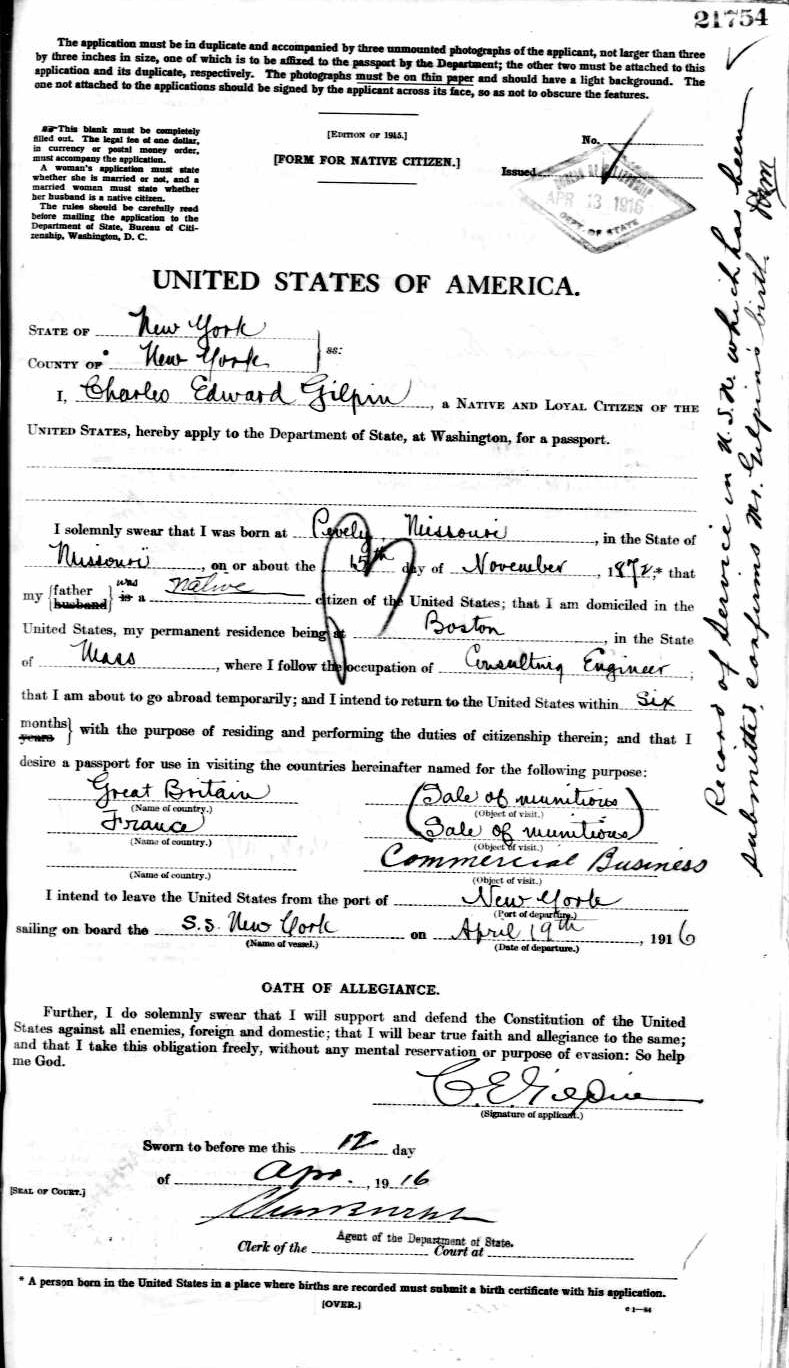 21754
The application must be in duplicate and accompanied by three unmounted photographs of the applicant, not larger than three
by three inches in size, one of which is to be affixed to the passport by the Department; the other two must be attached to this
application and its duplicate, respectively. The photographs must be on thin paper and should have a light background. The
one not attached to the applications should be signed by the applicant across its face, so as not to obscure the features.
This blank must be completely
filled out. The legal fee of one dollar,
in currency or postal money order,
must accompany the application.
A woman's application must state
whether she is married or not, and a
married woman must state whether
her husband is a native citizen.
The rules should be carefully read
before mailing the application to the
Department of State, Bureau of Citi-
zenship, Washington, D. C.
[EDITION OF 1915.]
[FORM FOR NATIVE CITIZEN.]
No.
Issued
BUREAU OF CITIZENSHIP
APR 13 1916
DEPT. OF STATE
UNITED STATES OF AMERICA.
STATE OF New York
COUNTY OF New York
ss:
I, Charles Edward Gilpin, a NATIVE AND LOYAL CITIZEN OF THE
UNITED STATES, hereby apply to the Department of State, at Washington, for a passport.
I solemnly swear that I was born at Pevely, Missouri, in the State of
Missouri, on or about the 15th day of November, 1872,* that
my {father husband} was is a native citizen of the United States; that I am domiciled in the
United States, my permanent residence being at Boston, in the State
of Mass, where I follow the occupation of Consulting Engineer;
that I am about to go abroad temporarily; and I intend to return to the United States within Six
months years} with the purpose of residing and performing the duties of citizenship therein; and that I
desire a passport for use in visiting the countries hereinafter named for the following purpose:
Great Britain (Sale of munitions)
(Name of country.) (Object of visit.)
France (Sale of munitions)
(Name of country.) (Object of visit.)
Commercial Business
(Name of country.) (Object of visit.)
I intend to leave the United States from the port of New York
(Port of departure.)
sailing on board the S.S. New York on April 19th, 1916
(Name of vessel.) (Date of departure.)
OATH OF ALLEGIANCE.
Further, I do solemnly swear that I will support and defend the Constitution of the United
States against all enemies, foreign and domestic; that I will bear true faith and allegiance to the same;
and that I take this obligation freely, without any mental reservation or purpose of evasion: So help
me God.
C E Gilpin
(Signature of applicant.)
Sworn to before me this 12 day
of Apr., 1916
[SEAL OF COURT.]
Agent of the Department of State.
Clerk of the Court at
* A person born in the United States in a place where births are recorded must submit a birth certificate with his application.
[OVER.]
Record of Service in U.S.N. which has been
submitted, confirms Mr. Gilpin's birth.